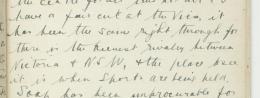 have a fair cut at the Vics, it
has been the same right through for
there is the keenest rivalry between
Victoria & N.S.W. & the place
it is when Sports are being held.
Soap has been unprocurable for